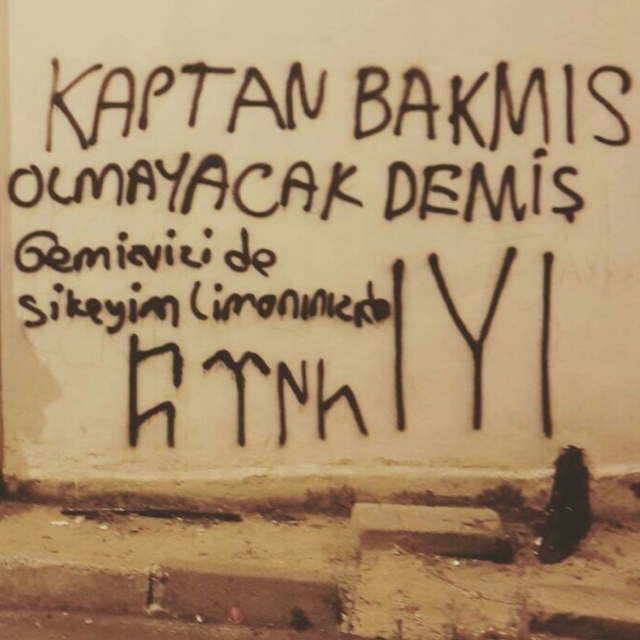 KAPTAN BAKMIS
OLMAYACAK DEMİŞ
Geminizi de
sikeyim Limanınızıda
IYI
𐱅𐰇𐰼𐰰